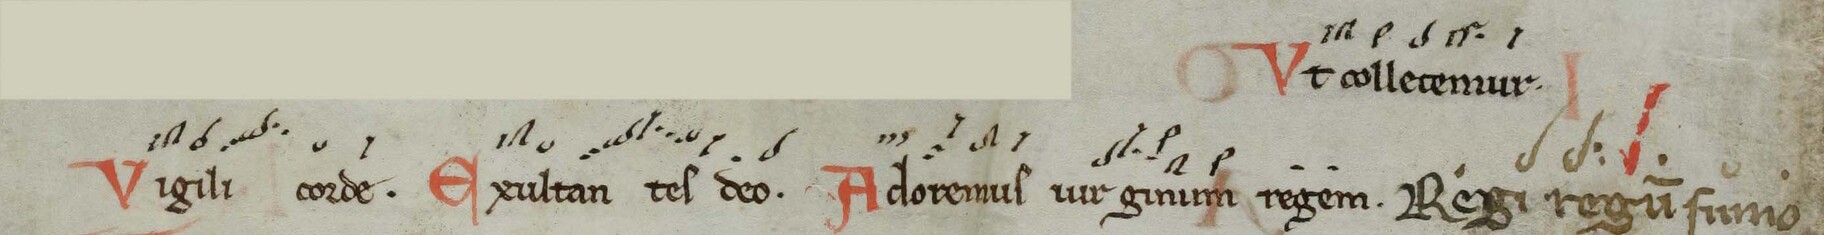 Vt collecemur.
Vigili corde. Exultan tes deo. Adoremus uir ginum regem. Regi regū sumo